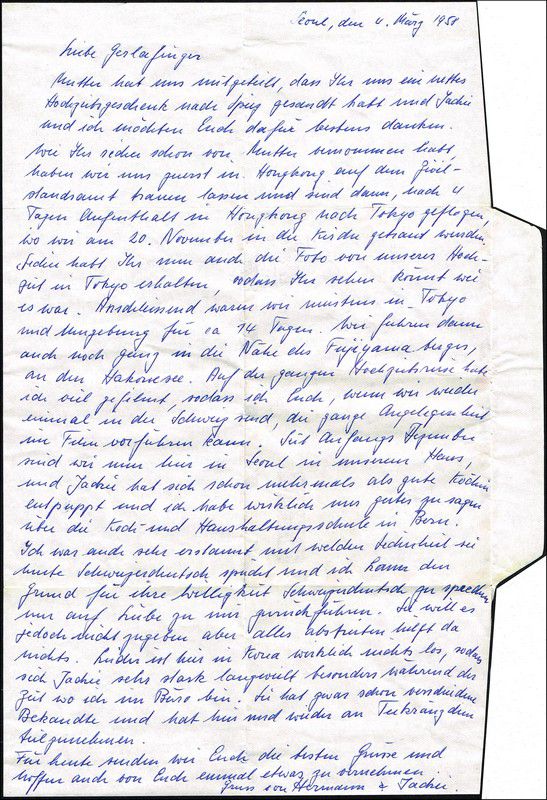 Seoul, den 4. März 1958
Liebe Gerlafinger
Mutter hat uns mitgeteilt, dass Ihr uns ein nettes
Hochzeitsgeschenk nach Spiez gesandt habt und Jackie
und ich möchten Euch dafür bestens danken.
Wie Ihr sicher schon von Mutter vernommen habt,
haben wir uns zuerst in Hongkong auf dem Zivil-
standsamt trauen lassen und sind dann, nach 4
Tagen Aufenthalt in Hongkong nach Tokyo geflogen,
wo wir am 20. November in der Kirche getraut wurden.
Sicher habt Ihr nun auch die Foto von unserer Hoch-
zeit in Tokyo erhalten, sodass Ihr sehen könnt wie
es war. Anschliessend waren wir meistens in Tokyo
und Umgebung für ca 14 Tagen. Wir fuhren dann
auch noch ganz in die Nähe des Fujiyama berges,
an den Hakonesee. Auf der ganzen Hochzeitsreise habe
ich viel gefilmt, sodass ich Euch, wenn wir wieder
einmal in der Schweiz sind, die ganze Angelegenheit
im Film vorführen kann. Seit Anfangs Dezember
sind wir nun hier in Seoul in unserem Haus,
und Jackie hat sich schon mehrmals als gute Köchin
entpuppt und ich habe wirklich nur gutes zu sagen
über die Koch- und Haushaltungsschule in Bern.
Ich war auch sehr erstaunt mit welcher Sicherheit sie
heute Schweizerdeutsch spricht und ich kann den
Grund für ihre Willigkeit Schweizerdeutsch zu sprechen
nur auf Liebe zu mir zurückführen. Sie will es
jedoch nicht zugeben aber alles abstreiten hilft da
nichts. Leider ist hier in Korea wirklich nichts los, sodass
sich Jackie sehr stark langweilt besonders während der
Zeit wo ich im Büro bin. Sie hat zwar schon verschiedene
Bekannte und hat hin und wieder an Teekränzchen
teilgenommen.
Für heute senden wir Euch die besten Grüsse und
hoffen auch von Euch einmal etwas zu vernehmen.
Gruss von Hermann & Jackie.